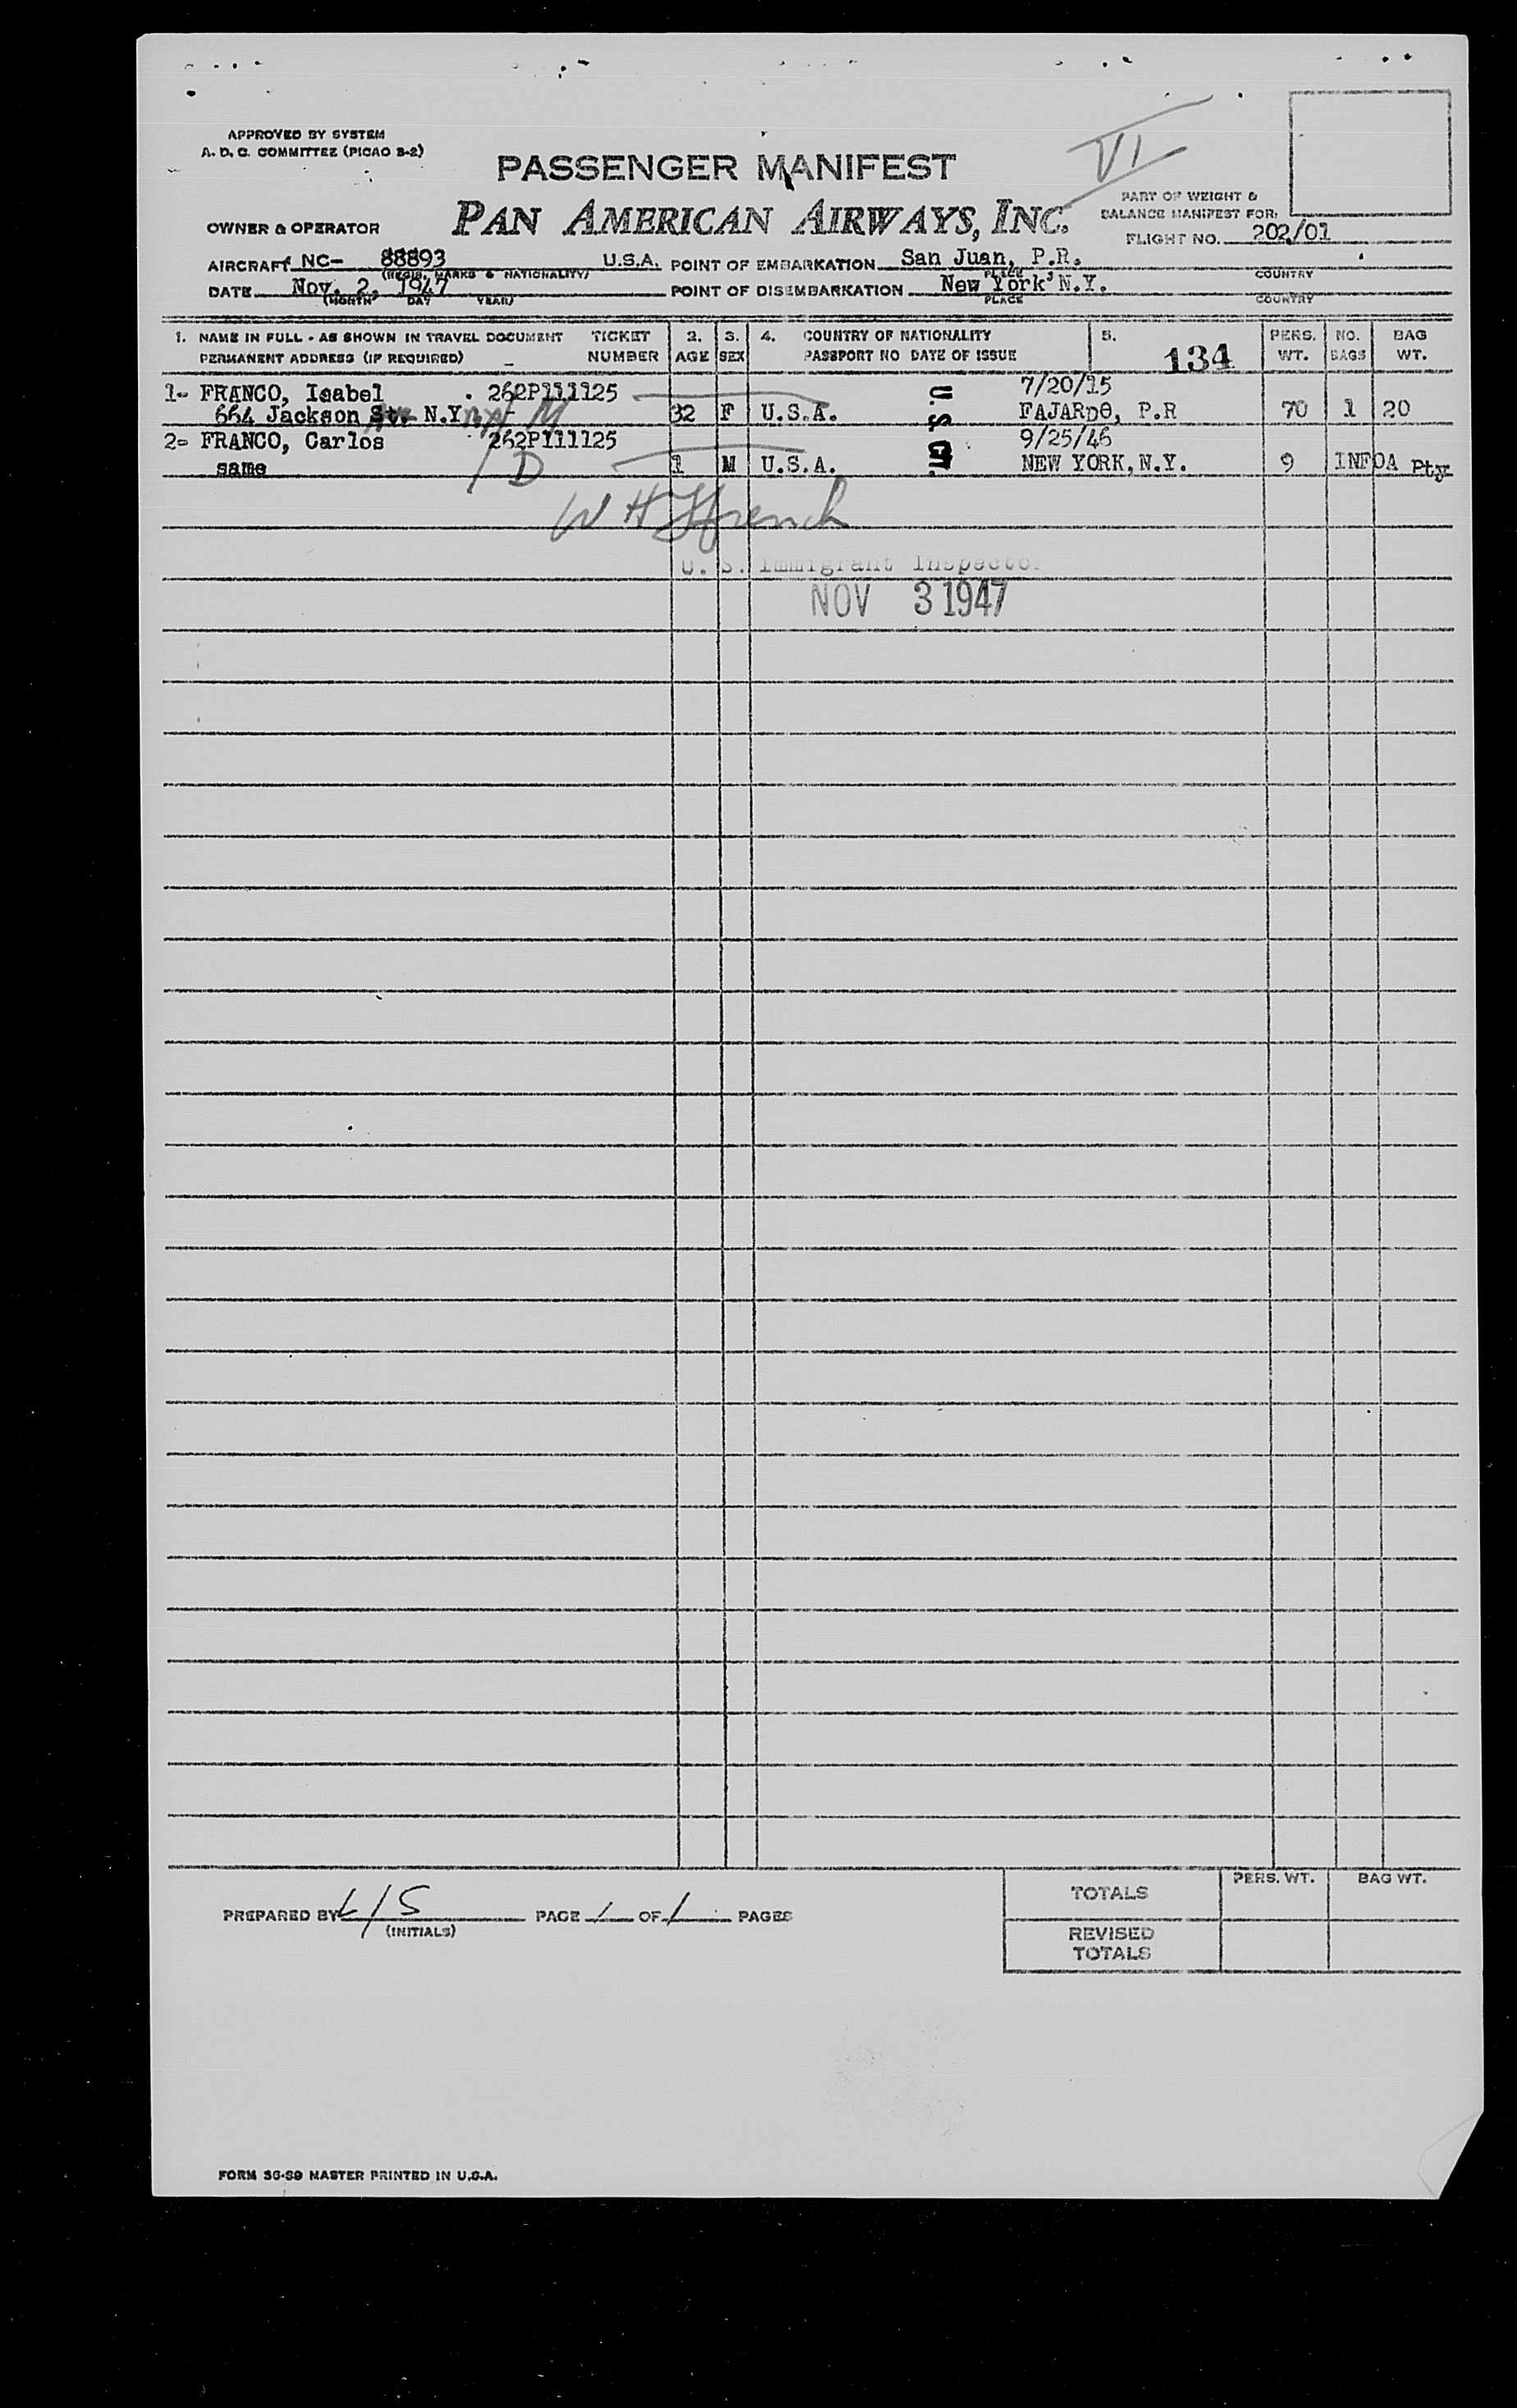 APPROVED BY SYSTEM
A. D. C. COMMITTEE (PICAO B-2)
PASSENGER MANIFEST
VI
PART OF WEIGHT &
BALANCE MANIFEST FOR:
OWNER & OPERATOR PAN AMERICAN AIRWAYS, INC.
FLIGHT NO. 202/01
AIRCRAFT NC- 88893 U.S.A. POINT OF EMBARKATION San Juan, P.R.
(REGIS. MARKS & NATIONALITY) PLACE COUNTRY
DATE Nov. 2, 1947 POINT OF DISEMBARKATION New York, N.Y.
(MONTH DAY YEAR) PLACE COUNTRY
1. NAME IN FULL - AS SHOWN IN TRAVEL DOCUMENT TICKET 2. 3. 4. COUNTRY OF NATIONALITY 5. PERS. NO. BAG
PERMANENT ADDRESS (IF REQUIRED) NUMBER AGE SEX PASSPORT NO DATE OF ISSUE 134 WT. BAGS WT.
1- FRANCO, Isabel 262P111125 7/20/15
664 Jackson St. N.Y. M 32 F U.S.A. FAJARDO, P.R 70 1 20
U.S. CIT.
2- FRANCO, Carlos 262P111125 9/25/46
same D 1 M U.S.A. NEW YORK, N.Y. 9 INFOA Pty
W H Ffrench
U. S. Immigrant Inspector
NOV 3 1947
TOTALS PERS. WT. BAG WT.
PREPARED BY L/S PAGE 1 OF 1 PAGES
(INITIALS)
REVISED
TOTALS
FORM 36-89 MASTER PRINTED IN U.S.A.